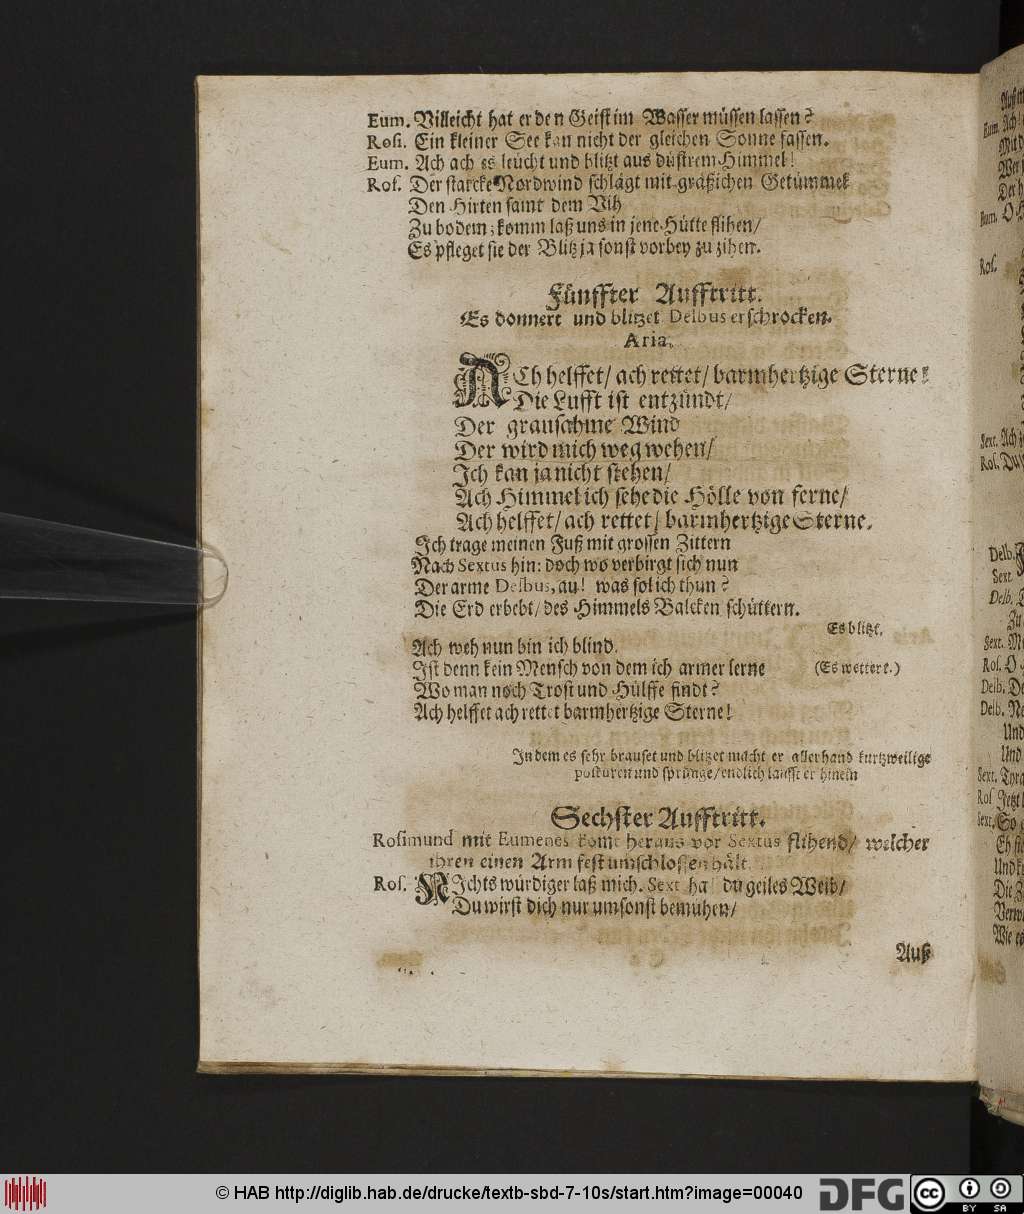 Eum. Villeicht hat er den Geist im Wasser müssen lassen?
Rosi. Ein kleiner See kan nicht der gleichen Sonne fassen.
Eum. Ach ach es leücht und blitzt aus düstrem Himmel!
Ros. Der starcke Nordwind schlägt mit gräßichen Getümmel
Den Hirten samt dem Vih
Zu bodem; komm laß uns in jene Hütte flihen/
Es pfleget sie der Blitz ja sonst vorbey zu zihen.
Fünffter Aufftritt.
Es donnert und blitzet Delbus erschrocken.
Aria.
ACh helffet/ ach rettet/ barmhertzige Sterne!
Die Lufft ist entzündt/
Der grausahme Wind
Der wird mich weg wehen/
Ich kan ja nicht stehen/
Ach Himmel ich sehe die Hölle von ferne/
Ach helffet/ ach rettet/ barmhertzige Sterne.
Ich trage meinen Fuß mit grossen Zittern
Nach Sextus hin: doch wo verbirgt sich nun
Der arme Delbus, au! was sol ich thun?
Die Erd erbebt/ des Himmels Balcken schüttern.
Es blitzt.
Ach weh nun bin ich blind.
Ist denn kein Mensch von dem ich armer lerne (Es wettert.)
Wo man noch Trost und Hülffe findt?
Ach helffet ach rettet barmhertzige Sterne!
In dem es sehr brauset und blitzet macht er allerhand kurtzweilige
posturen und sprünge/ endlich laufft er hinein
Sechster Aufftritt.
Rosimund mit Eumenes komt heraus vor Sextus flihend/ welcher
ihren einen Arm fest umschlossen hält.
Ros. NIchts würdiger laß mich. Sext ha! du geiles Weib/
Du wirst dich nur umsonst bemühen/
Auß
© HAB http://diglib.hab.de/drucke/textb-sbd-7-10s/start.htm?image=00040
DFG
cc
BY SA